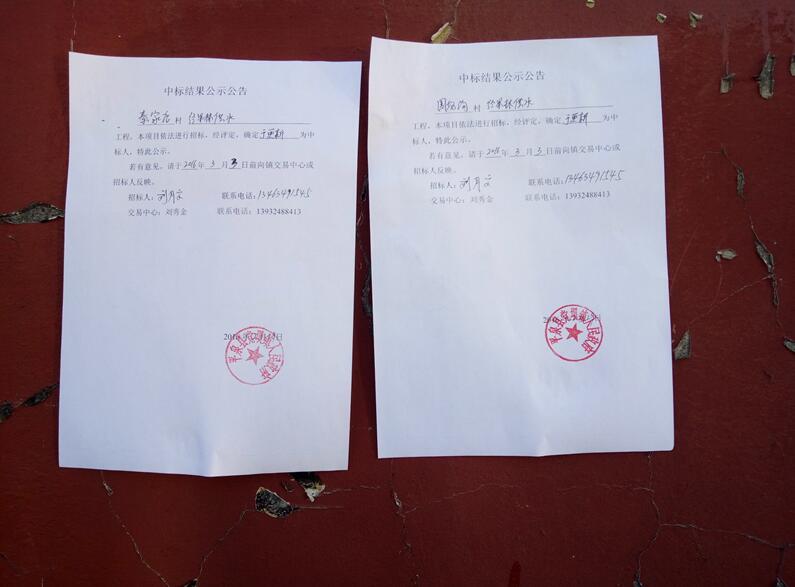 中标结果公示公告
秦家店 村 经果林供水
工程,本项目依法进行招标,经评定,确定 于更耕 为中
标人,特此公示。
若有意见,请于 2016 年 3 月 3 日前向镇交易中心或
招标人反映。
招标人: 刘月文 联系电话: 13463491545
交易中心:刘秀金 联系电话:13932488413
中标结果公示公告
村 经果林供水
工程,本项目依法进行招标,经评定,确定 于更耕 为中
标人,特此公示。
若有意见,请于 2016 年 3 月 3 日前向镇交易中心或
招标人反映。
招标人: 刘月文 联系电话: 13463491545
交易中心:刘秀金 联系电话:13932488413